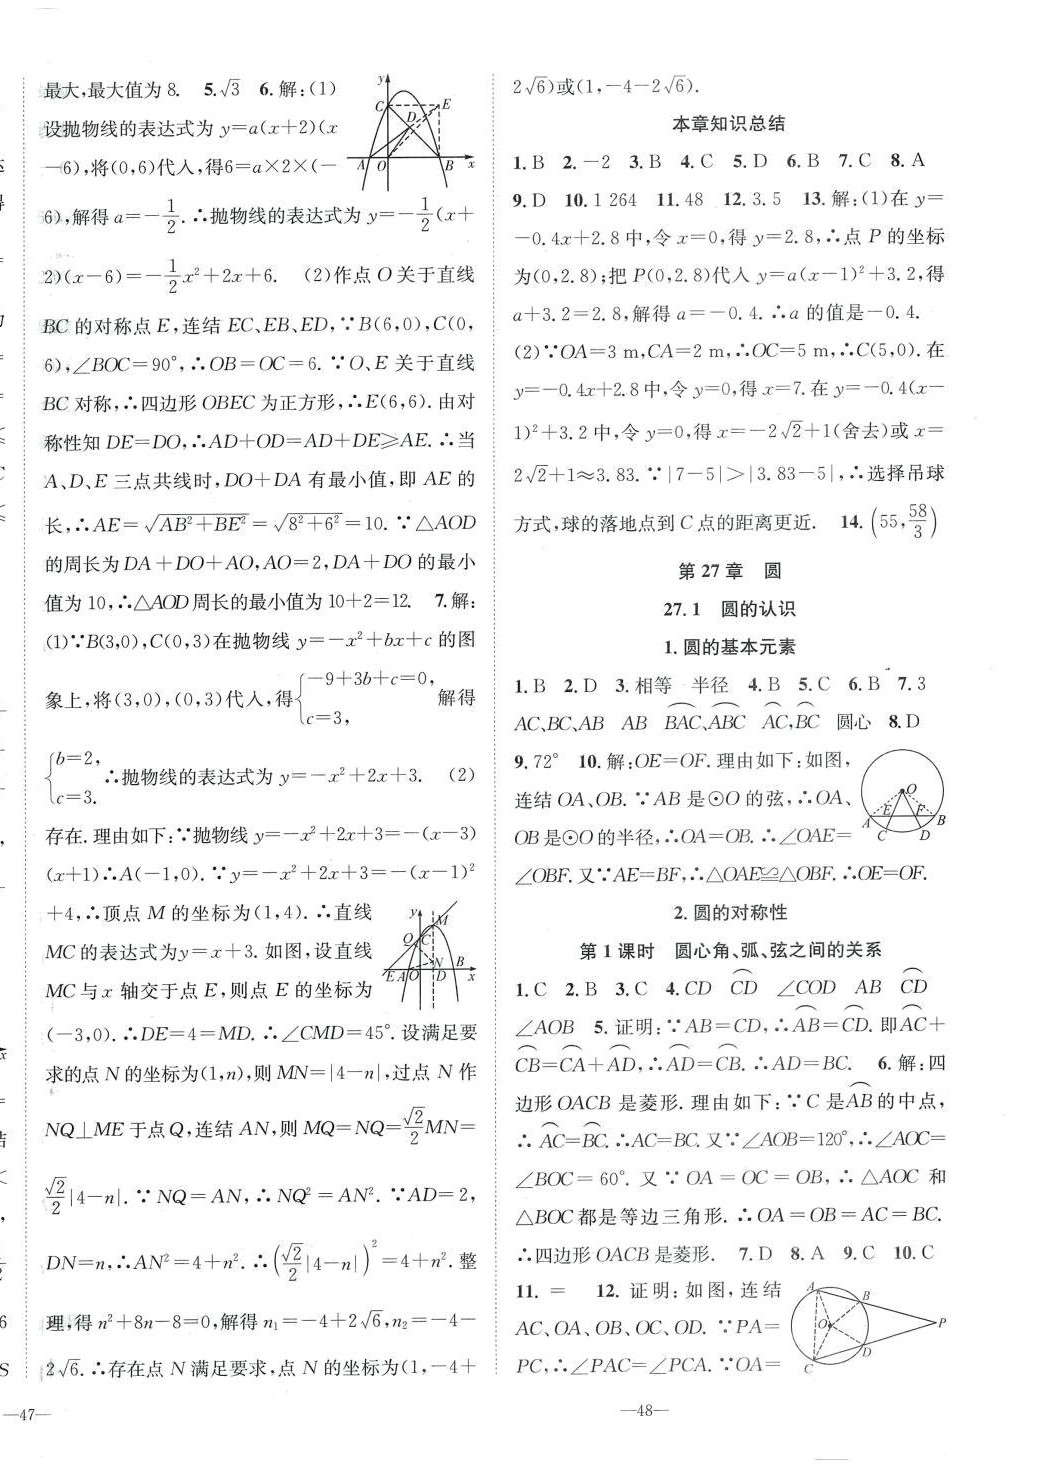 最大,最大值为 8. 5.√3 6.解:(1)
设抛物线的表达式为 y=a(x+2)(x
-6),将(0,6)代人,得6=a×2×(-
6),解得 a=-1/2.∴抛物线的表达式为 y=-1/2(x+
2)(x-6)=-1/2x²+2x+6. (2)作点 O 关于直线
BC 的对称点 E,连结 EC、EB、ED,∵B(6,0),C(0,
6),∠BOC=90°,∴OB=OC=6.∵O、E 关于直线
BC 对称,∴四边形 OBEC 为正方形,∴E(6,6).由对
称性知 DE=DO,∴AD+OD=AD+DE≥AE.∴当
A、D、E 三点共线时,DO+DA 有最小值,即 AE 的
长,∴AE=√(AB²+BE²)=√(8²+6²)=10.∵△AOD
的周长为 DA+DO+AO,AO=2,DA+DO 的最小
值为 10,∴△AOD 周长的最小值为 10+2=12. 7.解:
(1)∵B(3,0),C(0,3)在抛物线 y=-x²+bx+c 的图
象上,将(3,0),(0,3)代人,得{-9+3b+c=0, c=3, 解得
{b=2, c=3. ∴抛物线的表达式为 y=-x²+2x+3. (2)
存在.理由如下:∵抛物线 y=-x²+2x+3=-(x-3)
(x+1)∴A(-1,0).∵y=-x²+2x+3=-(x-1)²
+4,∴顶点 M 的坐标为(1,4).∴直线
MC 的表达式为y=x+3.如图,设直线
MC 与 x 轴交于点 E,则点 E 的坐标为
(-3,0).∴DE=4=MD.∴∠CMD=45°.设满足要
求的点 N 的坐标为(1,n),则 MN=|4-n|,过点 N 作
NQ⊥ME 于点 Q,连结 AN,则 MQ=NQ=√2/2MN=
√2/2|4-n|.∵NQ=AN,∴NQ²=AN².∵AD=2,
DN=n,∴AN²=4+n².∴(√2/2|4-n|)²=4+n².整
理,得 n²+8n-8=0,解得 n₁=-4+2√6,n₂=-4-
2√6.∴存在点 N 满足要求,点 N 的坐标为(1,-4+
y
C
E
D
A
O
B
x
y
M
Q
C
N
E
A
O
D
B
x
—47—
2√6)或(1,-4-2√6).
本章知识总结
1.B 2.-2 3.B 4.C 5.D 6.B 7.C 8.A
9.D 10.1 264 11.48 12.3.5 13.解:(1)在 y=
-0.4x+2.8 中,令 x=0,得 y=2.8,∴点 P 的坐标
为(0,2.8);把 P(0,2.8)代人 y=a(x-1)²+3.2,得
a+3.2=2.8,解得 a=-0.4.∴a 的值是-0.4.
(2)∵OA=3 m,CA=2 m,∴OC=5 m,∴C(5,0).在
y=-0.4x+2.8中,令 y=0,得 x=7.在 y=-0.4(x-
1)²+3.2 中,令 y=0,得 x=-2√2+1(舍去)或 x=
2√2+1≈3.83.∵|7-5|>|3.83-5|,∴选择吊球
方式,球的落地点到 C 点的距离更近. 14.(55,58/3)
第 27 章 圆
27.1 圆的认识
1.圆的基本元素
1.B 2.D 3.相等 半径 4.B 5.C 6.B 7.3
AC、BC、AB AB B͡AC、A͡BC A͡C,B͡C 圆心 8.D
9.72° 10.解:OE=OF.理由如下:如图,
连结 OA、OB.∵AB 是⊙O 的弦,∴OA、
OB 是⊙O 的半径,∴OA=OB.∴∠OAE=
∠OBF.又∵AE=BF,∴△OAE≌△OBF.∴OE=OF.
O
E
F
A
C
D
B
2.圆的对称性
第 1 课时 圆心角、弧、弦之间的关系
1.C 2.B 3.C 4.CD C͡D ∠COD AB C͡D
∠AOB 5.证明:∵AB=CD,∴A͡B=C͡D.即A͡C+
C͡B=C͡A+A͡D,∴A͡D=C͡B.∴AD=BC. 6.解:四
边形 OACB 是菱形.理由如下:∵C 是A͡B的中点,
∴A͡C=B͡C.∴AC=BC.又∵∠AOB=120°,∴∠AOC=
∠BOC=60°.又∵OA=OC=OB,∴△AOC 和
△BOC 都是等边三角形.∴OA=OB=AC=BC.
∴四边形 OACB 是菱形. 7.D 8.A 9.C 10.C
11.= 12.证明:如图,连结
AC、OA、OB、OC、OD.∵PA=
PC,∴∠PAC=∠PCA.∵OA=
A
B
O
P
D
C
—48—